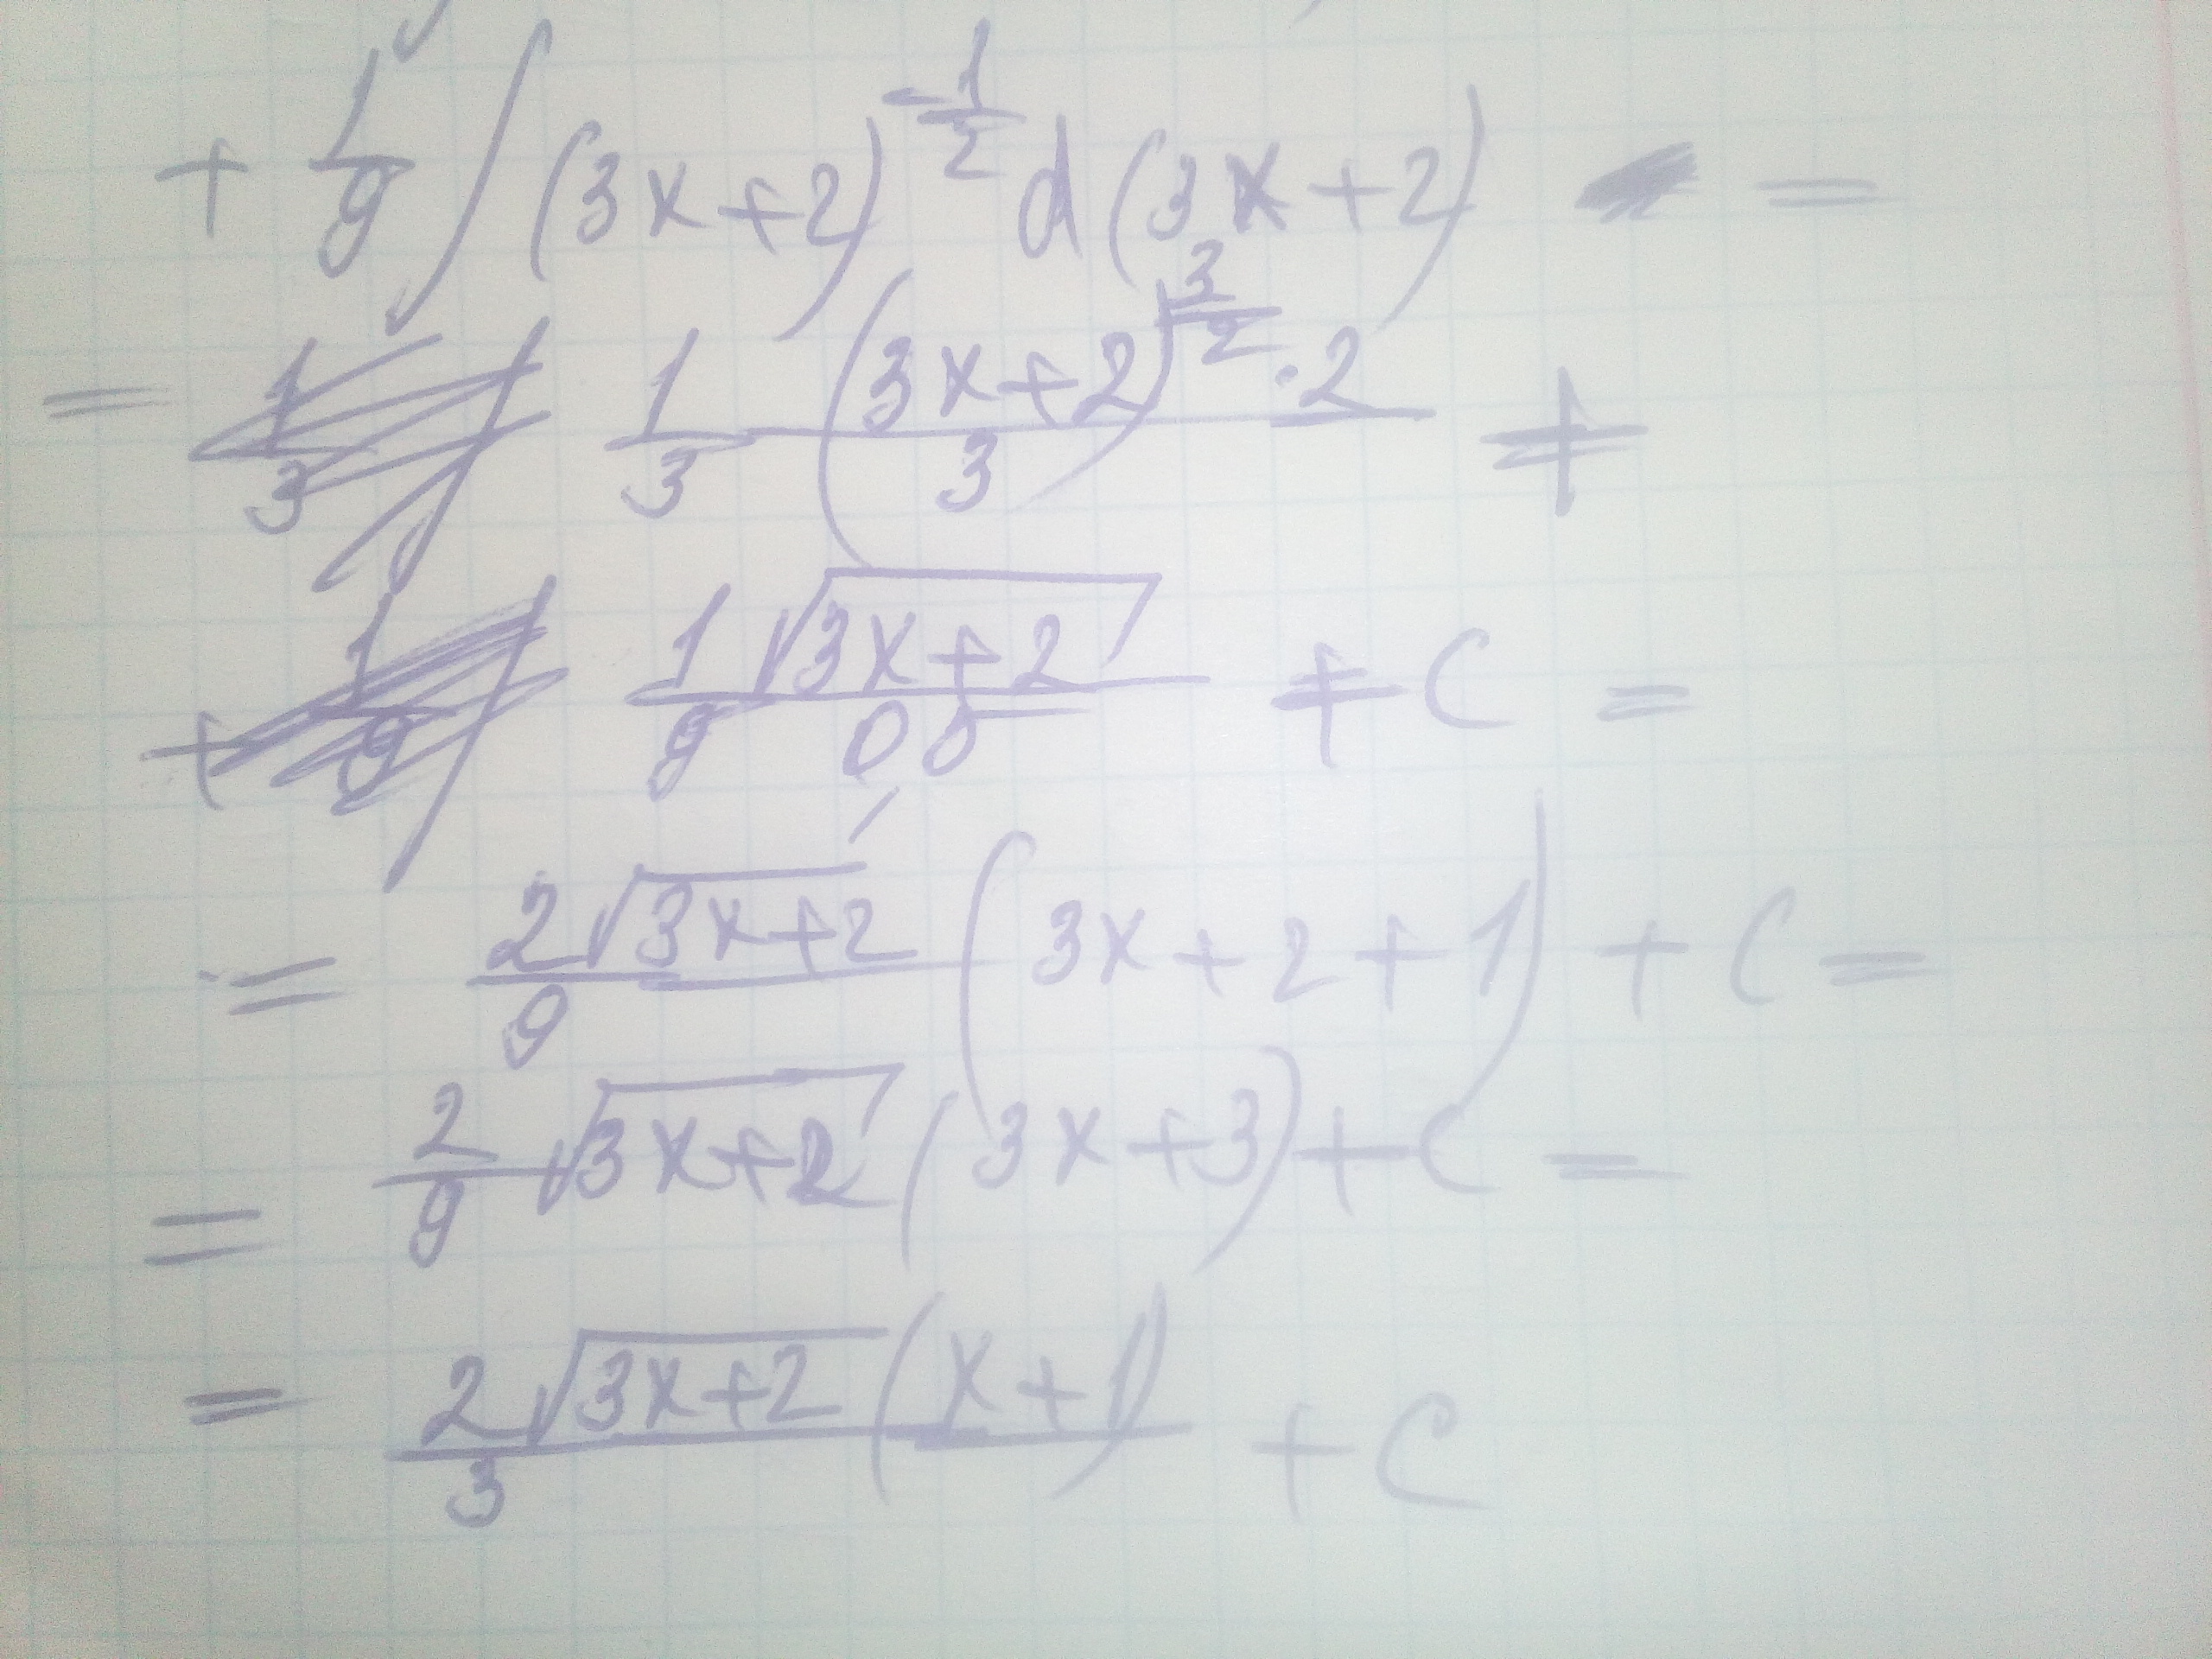 + 1/9 ∫ (3x+2)^(-1/2) d(3x+2) =
= 1/3 (3x+2)^(3/2) · 2 / 3 +
+ 1/9 √(3x+2) / 0,5 + C =
= 2√(3x+2) / 9 (3x + 2 + 1) + C =
= 2/9 √(3x+2) (3x+3) + C =
= 2√(3x+2) (x+1) / 3 + C